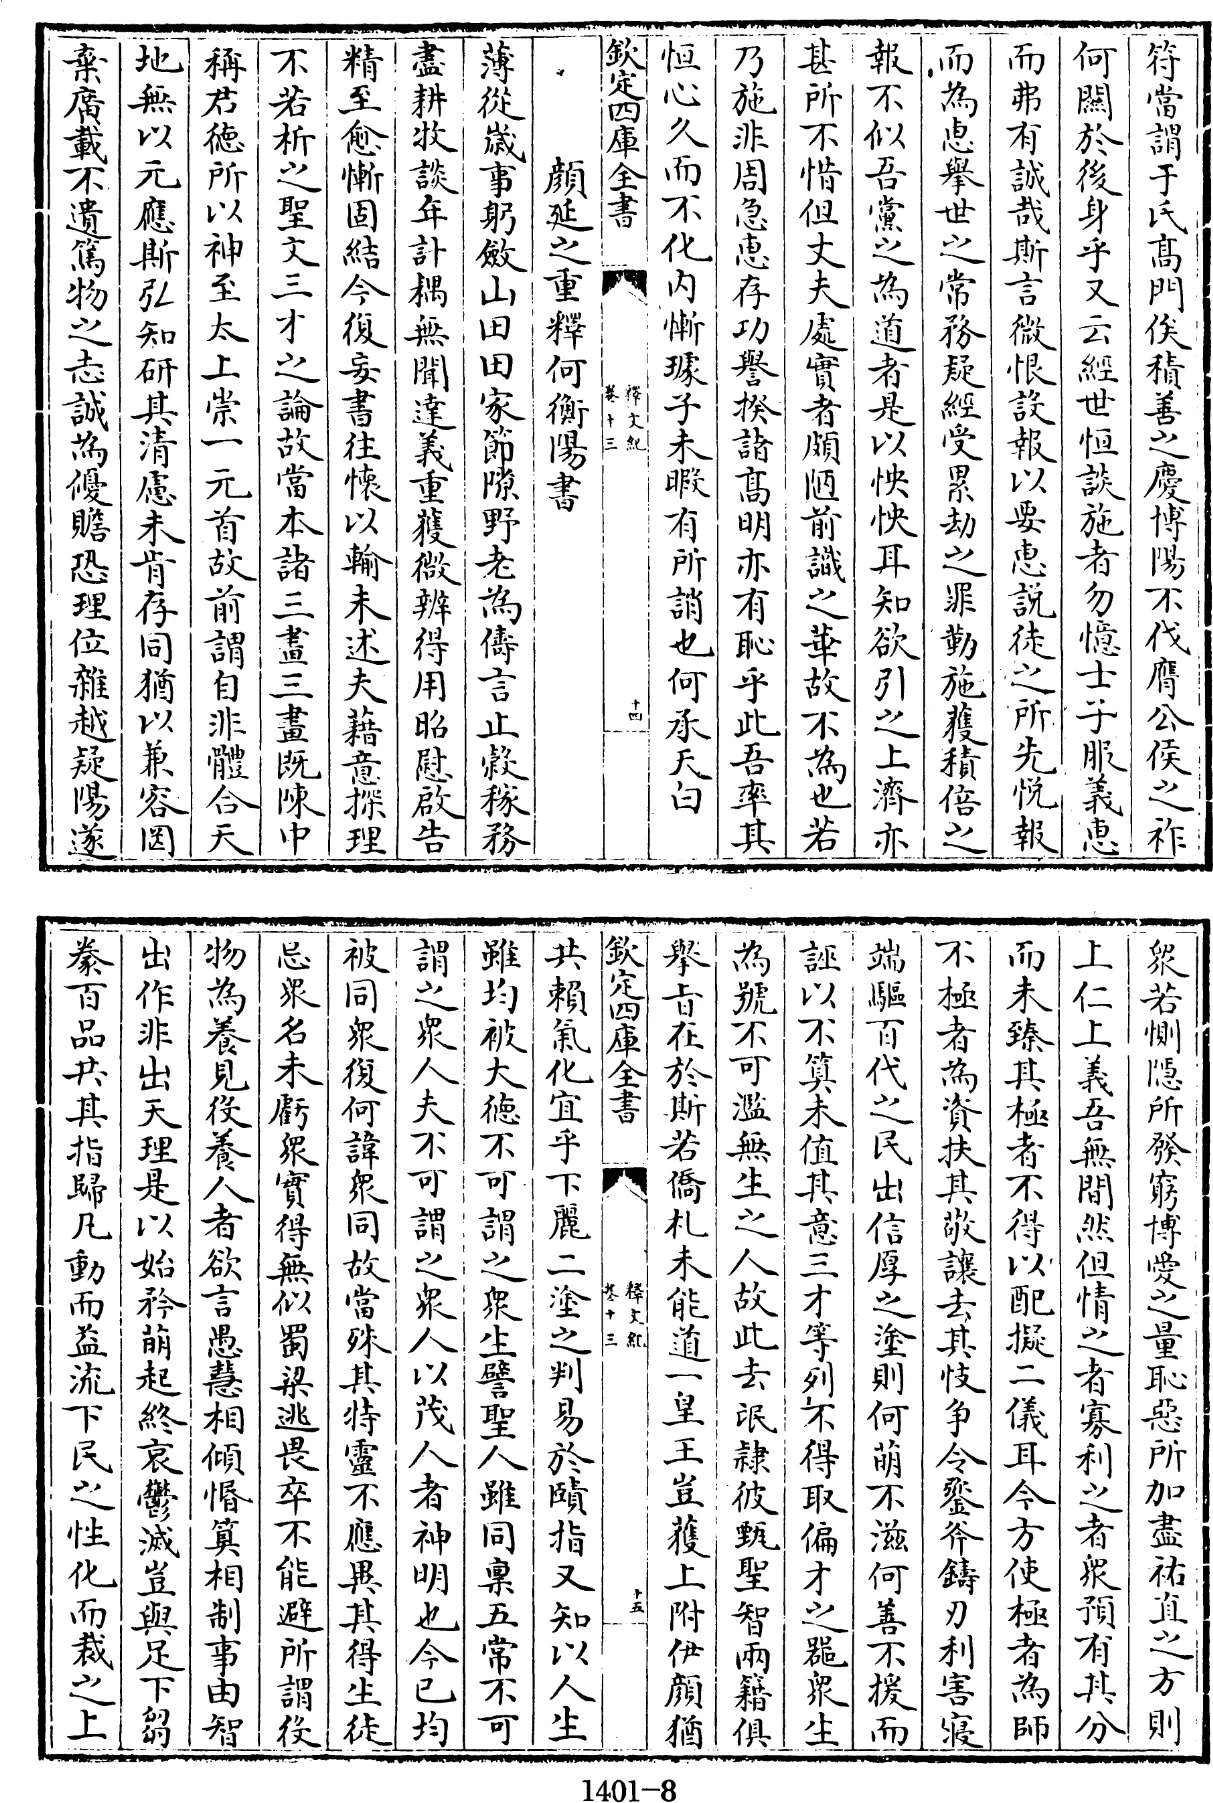 符當謂于氏髙門俟積善之慶博陽不伐膺公侯之祚
何關於後身乎又云經世恒談施者勿憶士子服義惠
而弗有誠哉斯言微恨設報以要惠説徒之所先悦報
而為惠舉世之常務疑經受累劫之罪勤施獲積倍之
報不似吾黨之為道者是以怏怏耳知欲引之上濟亦
甚所不惜但丈夫處實者頗陋前識之華故不為也若
乃施非周急惠存功譽揆諸髙明亦有恥乎此吾率其
恒心久而不化内慚璩子未暇有所誚也何承天白
欽定四庫全書
釋文紀
卷十三
十四
顔延之重釋何衡陽書
薄從嵗事躬斂山田田家節隙野老為儔言止榖稼務
盡耕牧談年計耦無聞達義重獲微辨得用昭慰啟告
精至愈慚固結今復妄書往懐以輸未述夫藉意探理
不若析之聖文三才之論故當本諸三畫三畫既陳中
稱君德所以神至太上崇一元首故前謂自非體合天
地無以元應斯弘知研其清慮未肯存同猶以兼容罔
棄廣載不遺篤物之志誠為優贍恐理位雜越疑陽遂
衆若惻隠所發窮博愛之量恥惡所加盡祐直之方則
上仁上義吾無間然但情之者寡利之者衆預有其分
而未臻其極者不得以配擬二儀耳今方使極者為師
不極者為資扶其敬讓去其忮争令鋻斧鑄刃利害寖
端驅百代之民出信厚之塗則何萌不滋何善不援而
誣以不算未值其意三才等列不得取偏才之器衆生
為號不可濫無生之人故此去氓隷彼甄聖智兩籍俱
舉旨在於斯若僑札未能道一皇王豈獲上附伊顔猶
欽定四庫全書
釋文紀
卷十三
十五
共賴氣化宜乎下麗二塗之判易於賾指又知以人生
雖均被大德不可謂之衆生譬聖人雖同稟五常不可
謂之衆人夫不可謂之衆人以茂人者神明也今已均
被同衆復何諱衆同故當殊其特靈不應異其得生徒
忌衆名未虧衆實得無似蜀梁逃畏卒不能避所謂役
物為養見役養人者欲言愚慧相傾惛算相制事由智
出作非出天理是以始矜萌起終哀鬱滅豈與足下芻
豢百品共其指歸凡動而益流下民之性化而裁之上
1401-8